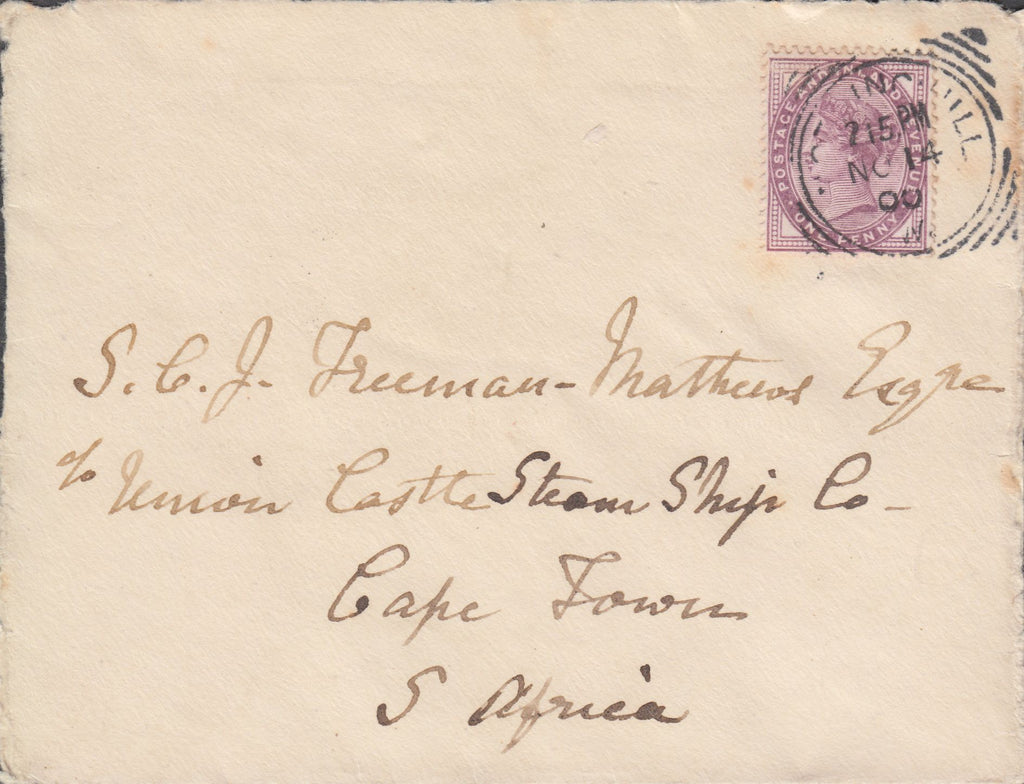 POSTAGE AND REVENUE
ONE PENNY
NOTTING HILL
2 15 PM
NO 14
00
W.
S. C. J. Freeman-Mathews Esqre
c/o Union Castle Steam Ship Co-
Cape Town
S Africa